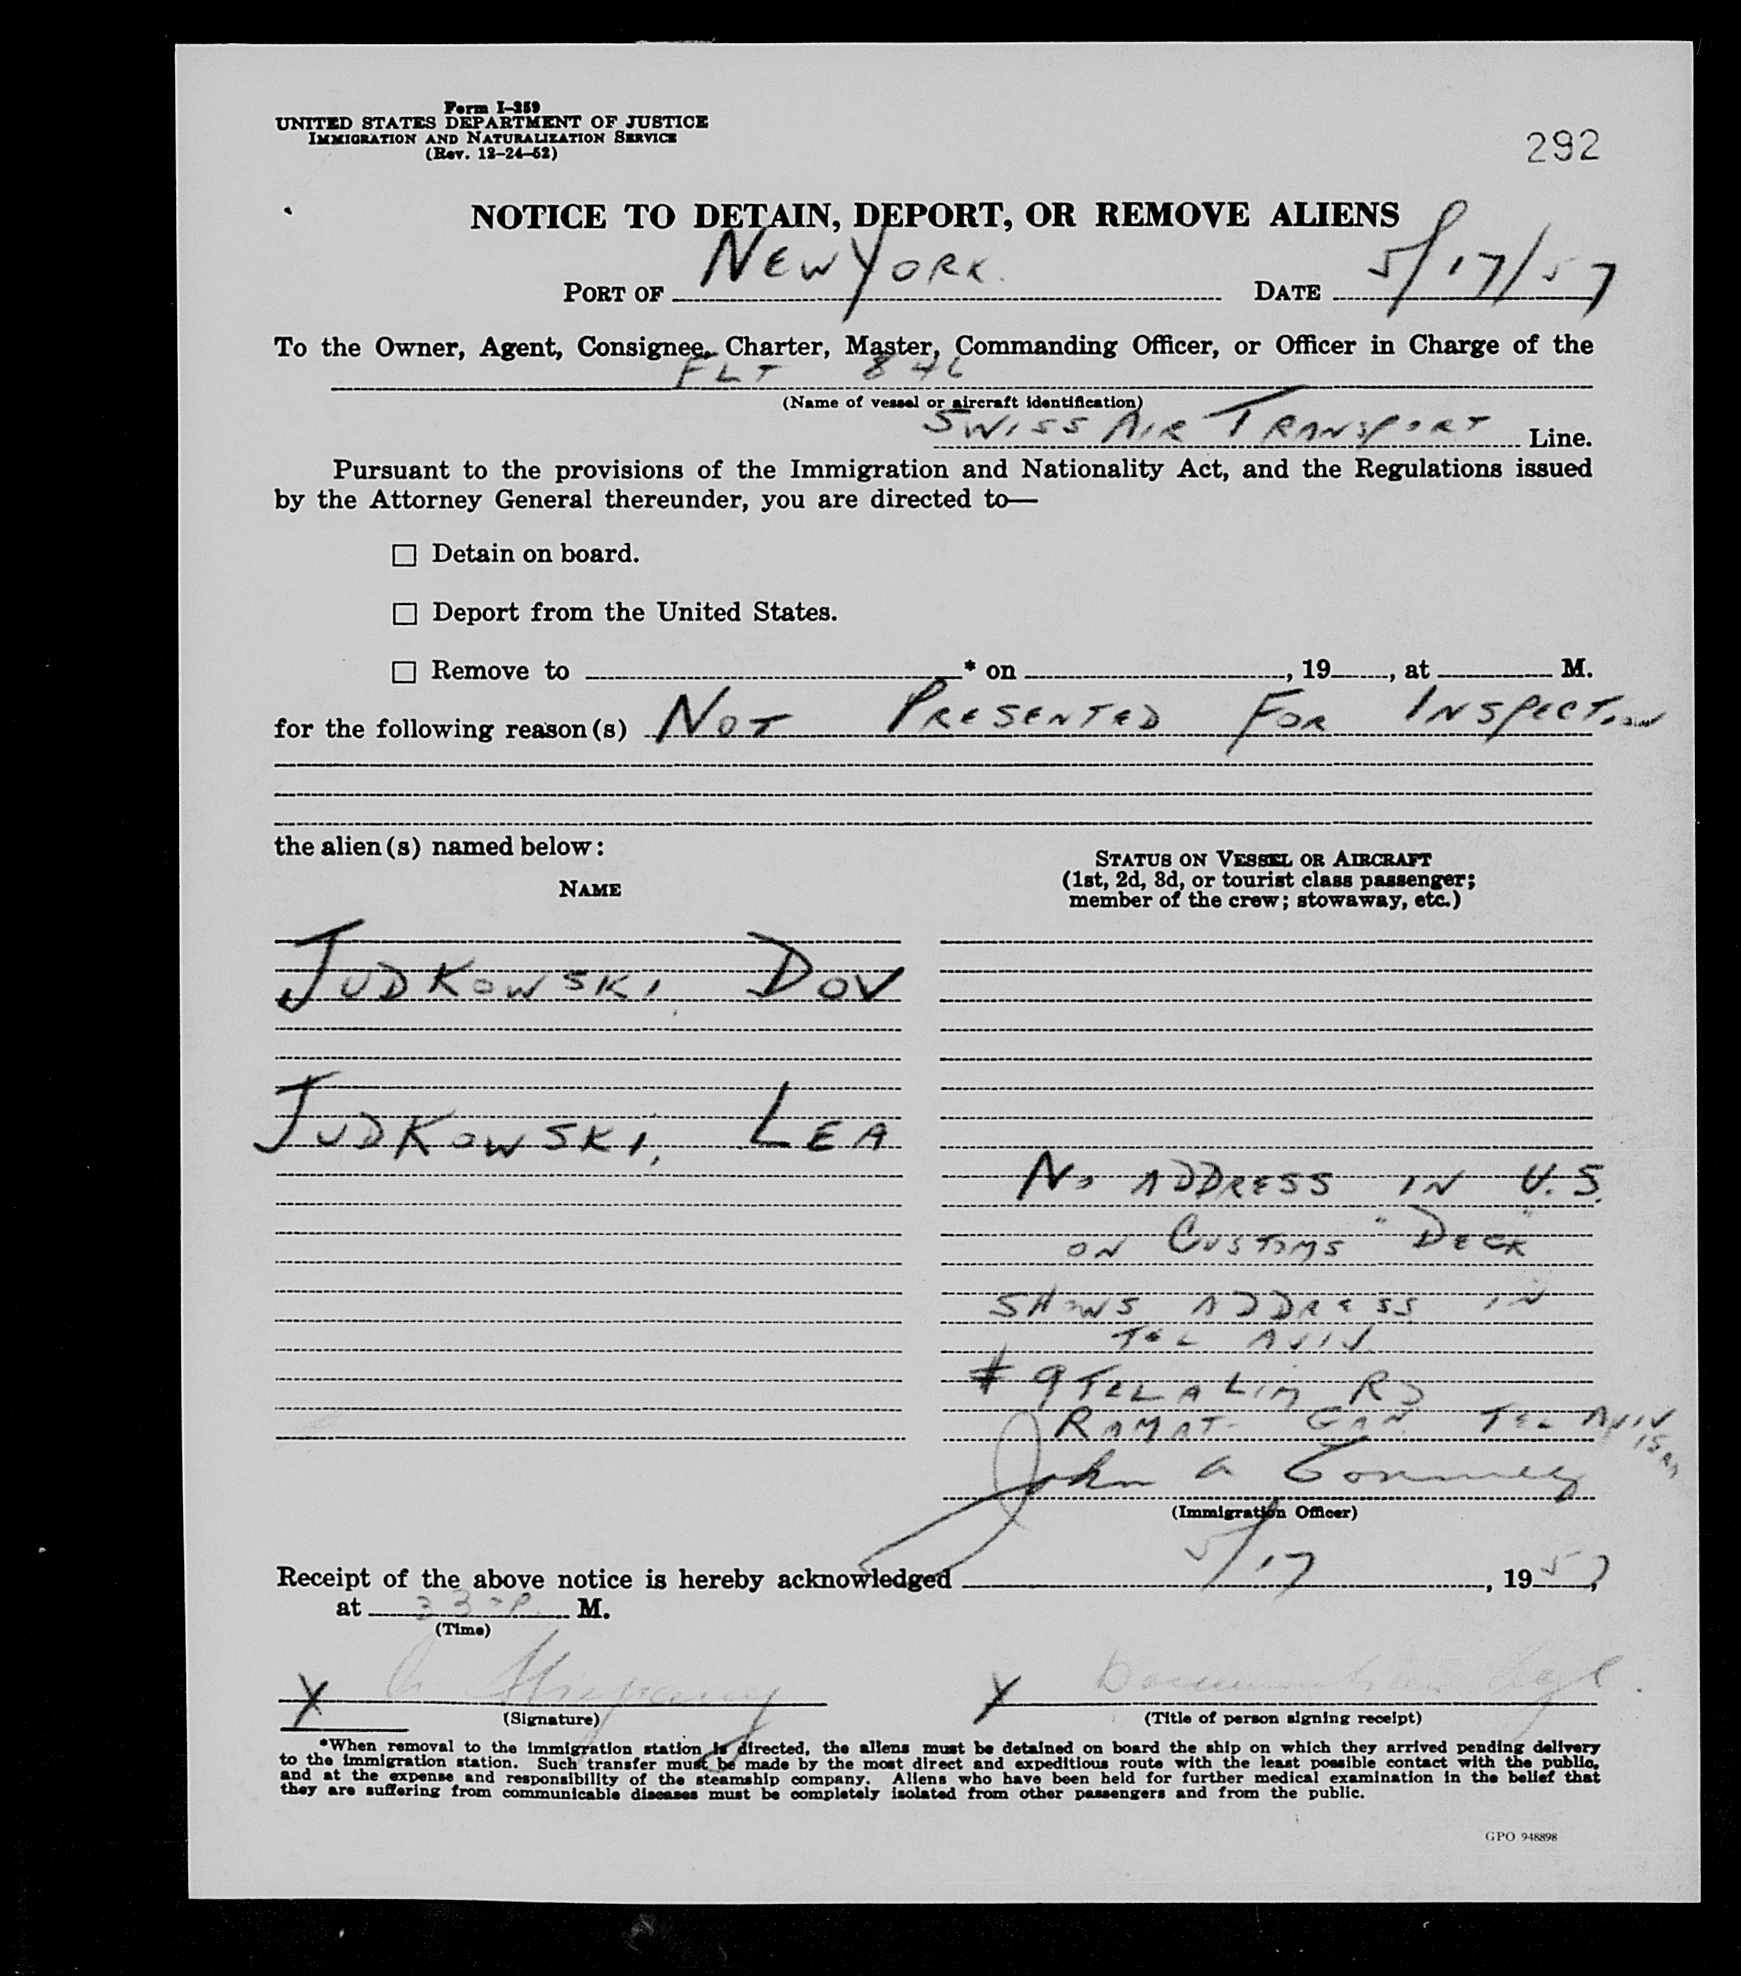 Form I-259
UNITED STATES DEPARTMENT OF JUSTICE
IMMIGRATION AND NATURALIZATION SERVICE
(Rev. 12-24-52)
292
NOTICE TO DETAIN, DEPORT, OR REMOVE ALIENS
PORT OF NEW YORK. DATE 5/17/57
To the Owner, Agent, Consignee, Charter, Master, Commanding Officer, or Officer in Charge of the
FLT 846
(Name of vessel or aircraft identification)
SWISS AIR TRANSPORT Line.
Pursuant to the provisions of the Immigration and Nationality Act, and the Regulations issued
by the Attorney General thereunder, you are directed to—
☐ Detain on board.
☐ Deport from the United States.
☐ Remove to * on , 19 , at M.
for the following reason(s) NOT PRESENTED FOR INSPECTION
the alien(s) named below:
NAME
STATUS ON VESSEL OR AIRCRAFT
(1st, 2d, 3d, or tourist class passenger;
member of the crew; stowaway, etc.)
JUDKOWSKI, DOV
JUDKOWSKI, LEA
No ADDRESS IN U.S.
ON CUSTOMS "DECK"
SHOWS ADDRESS IN
TEL AVIV.
# 9 TEL A LIM RD
RAMAT- GAN. TEL AVIV
John A Connelly
(Immigration Officer)
Receipt of the above notice is hereby acknowledged 5/17, 1957,
at 330P. M.
(Time)
X
X
(Signature)
(Title of person signing receipt)
*When removal to the immigration station is directed, the aliens must be detained on board the ship on which they arrived pending delivery
to the immigration station. Such transfer must be made by the most direct and expeditious route with the least possible contact with the public,
and at the expense and responsibility of the steamship company. Aliens who have been held for further medical examination in the belief that
they are suffering from communicable diseases must be completely isolated from other passengers and from the public.
GPO 948898